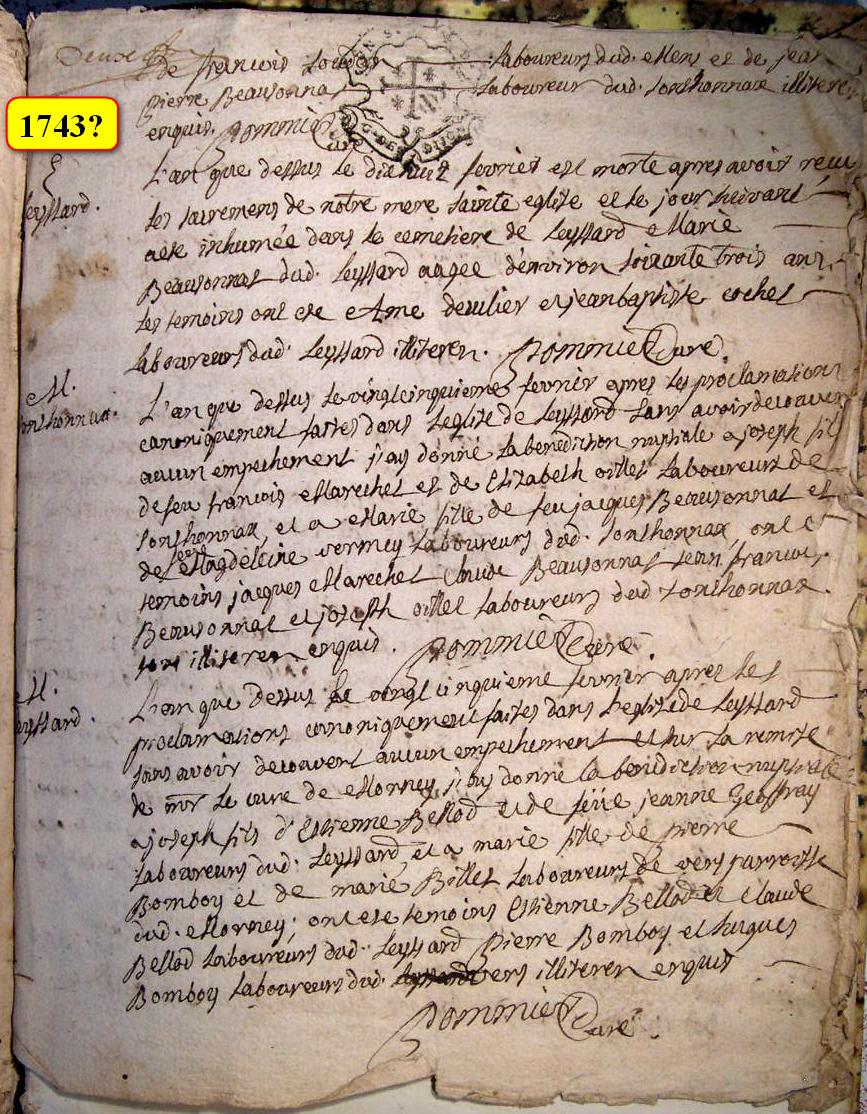 Deuxe
de francois laboureurs dud. Mens et de jean
pierre Beausonnat laboureur dud. sonthonnax illiteren
enquis. Pommier Curé
1743?
E
Leyssard.
L'an que dessus le dixhuit fevrier est morte apres avoir reçu
les sacremens de notre mere sainte eglise et le jour suivant
a ete inhumée dans le cemetiere de Leyssard Marie
Beausonnat dud. Leyssard aagée d'environ soixante trois ans.
les temoins ont ete Ame et jeanbaptiste cochet
laboureurs dud. Leyssard illiteren. Pommier Curé.
M.
sonthonnax.
L'an que dessus le vingtcinquieme fevrier apres les proclamations
canoniquement faites dans l'eglise de Leyssard sans avoir decouvert
aucun empechement j'ay donné la benediction nuptiale a joseph fils
de feu francois Marechet et de Elizabeth oillet laboureurs de
sonthonnax, et a Marie fille de feu jacques Beausonnat et
de feue Magdeleine vermey laboureurs dud. sonthonnax, ont ete
temoins jacques Marechet Claude Beausonnat jean francois
Beausonnat et joseph oillet laboureurs dud sonthonnax.
tous illiteren enquis. Pommier Curé.
M.
Leyssard.
L'an que dessus le vingt cinquieme fevrier apres les
proclamations canoniquement faites dans l'eglise de Leyssard
sans avoir decouvert aucun empechement et sur la remise
de mr le curé de Morney, j'ay donné la benediction nuptiale
a joseph fils d'Estienne Bellod et de feüe jeanne Geoffray
laboureurs dud. Leyssard, et a marie fille de pierre
Bomboy et de marie Billet laboureurs de vers parroisse
dud. Morney; ont ete temoins Estienne Bellod et Claude
Bellod laboureurs dud. Leyssard Pierre Bomboy et hugues
Bomboy laboureurs dud. vers illiteren enquis
Pommier Curé.